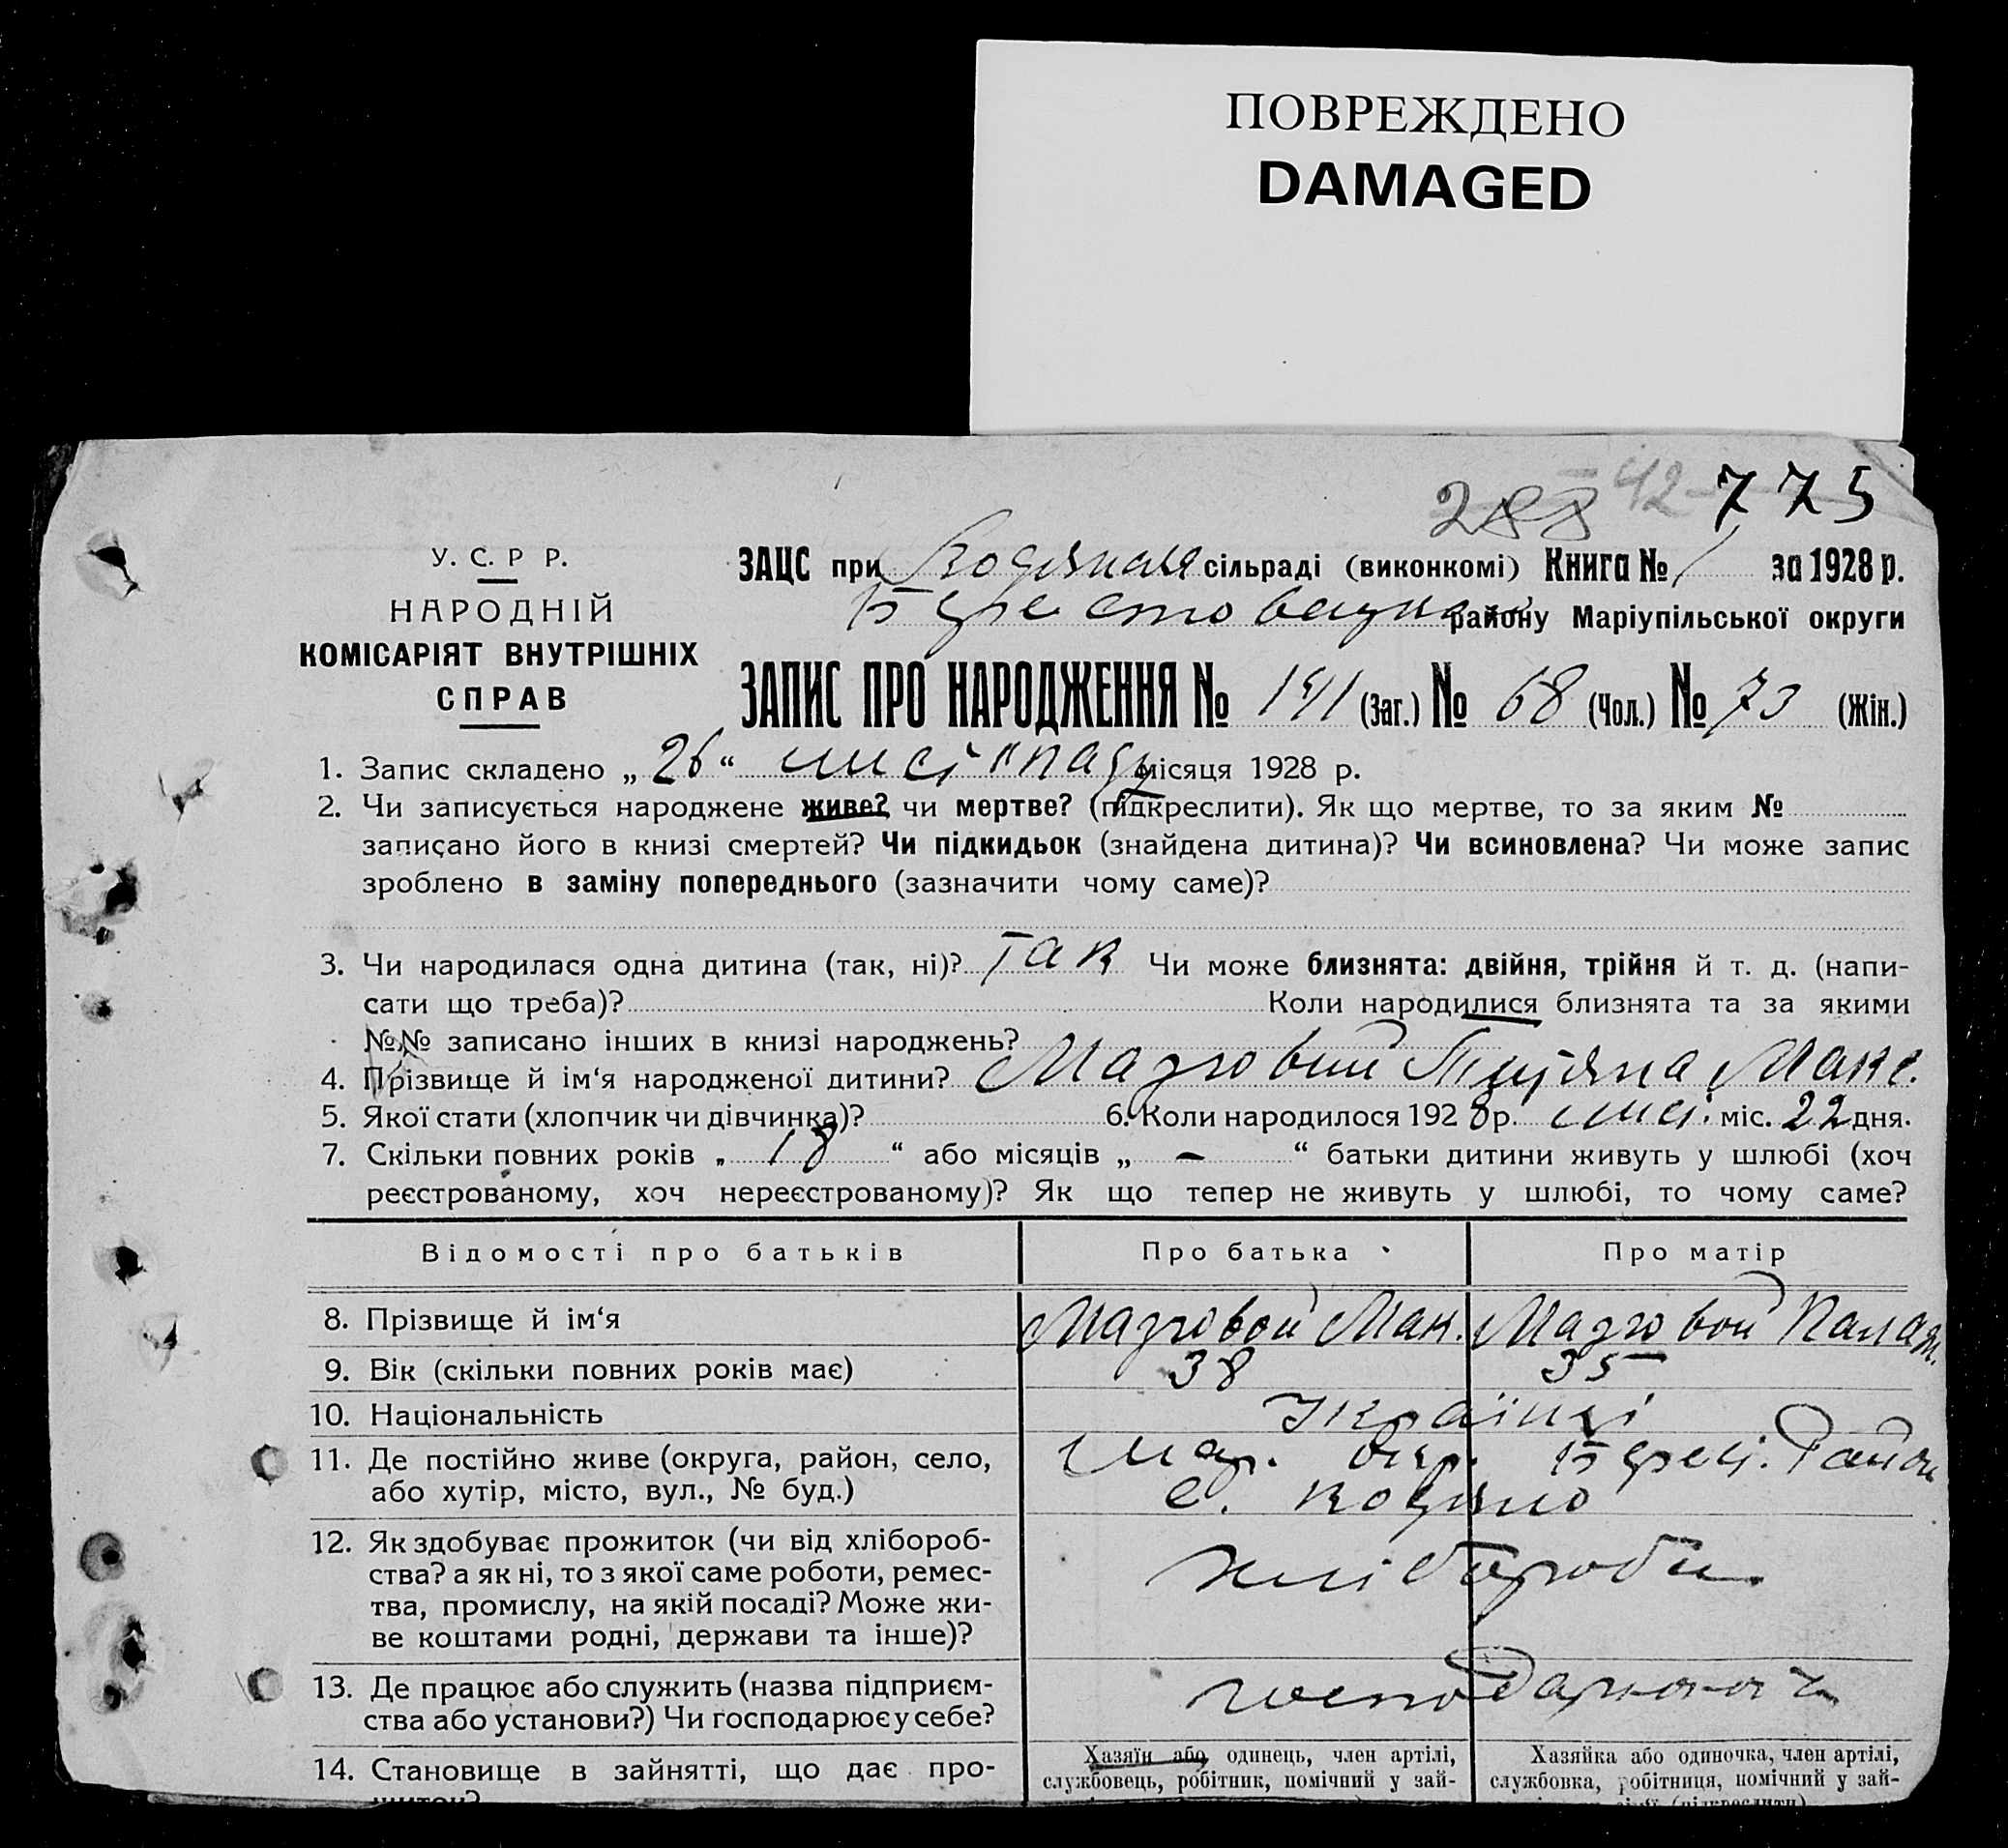 ПОВРЕЖДЕНО
DAMAGED
288 42 775
У. С. Р Р.
НАРОДНІЙ
КОМІСАРІЯТ ВНУТРІШНІХ
СПРАВ
ЗАЦС при сільраді (виконкомі) Книга № 1 за 1928 р.
району Маріупільської округи
ЗАПИС ПРО НАРОДЖЕННЯ № 141 (Заг.) № 68 (Чол.) № 73 (Жін.)
1. Запис складено „ 26 “ листопаду місяця 1928 р.
2. Чи записується народжене живе? чи мертве? (підкреслити). Як що мертве, то за яким №
записано його в книзі смертей? Чи підкидьок (знайдена дитина)? Чи всиновлена? Чи може запис
зроблено в заміну попереднього (зазначити чому саме)?
3. Чи народилася одна дитина (так, ні)? Так Чи може близнята: двійня, трійня й т. д. (напи-
сати що треба)? Коли народилися близнята та за якими
№№ записано інших в книзі народжень?
4. Прізвище й ім‘я народженої дитини? Мак.
5. Якої стати (хлопчик чи дівчинка)? 6. Коли народилося 1928 р. лист. міс. 22 дня.
7. Скільки повних років „ 18 “ або місяців „ – “ батьки дитини живуть у шлюбі (хоч
реєстрованому, хоч нереєстрованому)? Як що тепер не живуть у шлюбі, то чому саме?
Відомості про батьків Про батька Про матір
8. Прізвище й ім‘я Мак.
9. Вік (скільки повних років має) 38 35
10. Національність Українці
11. Де постійно живе (округа, район, село, Мар. окр. Район
або хутір, місто, вул., № буд.) с. Водяно
12. Як здобуває прожиток (чи від хлібороб- хлібороби
ства? а як ні, то з якої саме роботи, ремес-
тва, промислу, на якій посаді? Може жи-
ве коштами родні, держави та інше)?
13. Де працює або служить (назва підприєм-
ства або установи?) Чи господарює у себе?
14. Становище в зайнятті, що дає про-
Хазяїн або одинець, член артілі,
службовець, робітник, помічний у зай-
Хазяйка або одиночка, член артілі,
службовка, робітниця, помічний у зай-